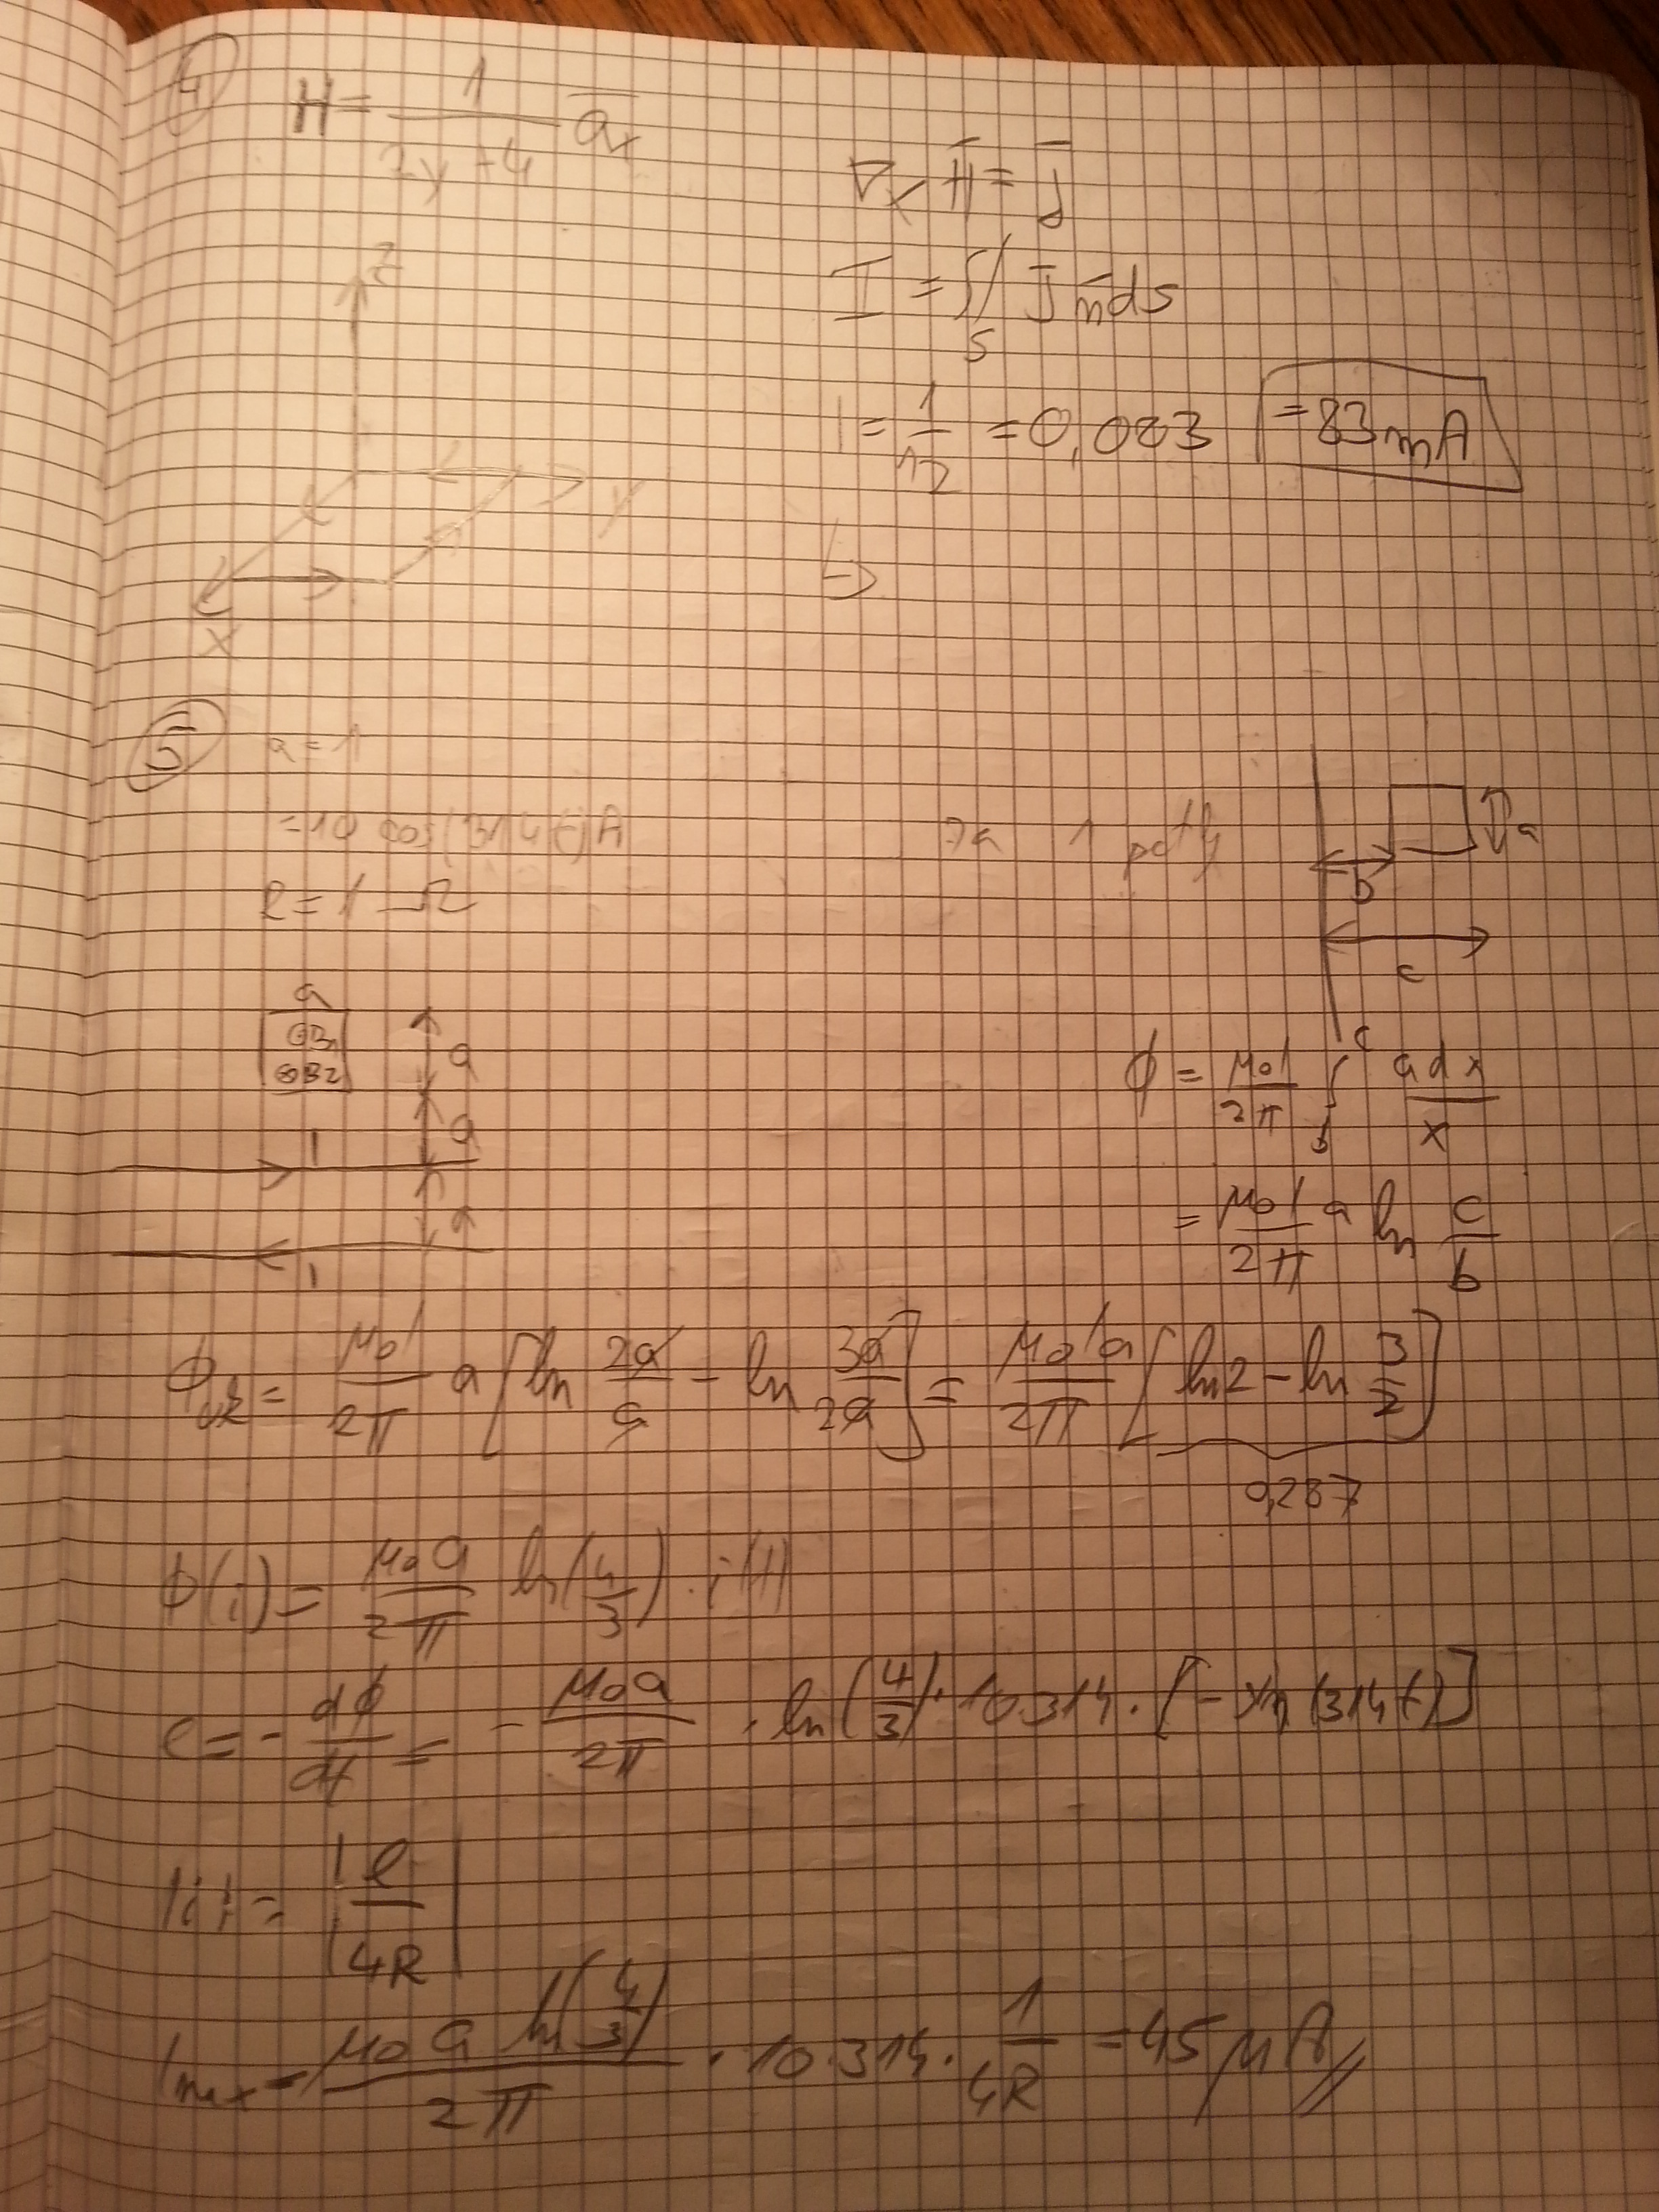 4
H = 1/(2y+4) a̅x
∇ x H̅ = J̅
I = ∬_S J̅ n̅ ds
I = 1/12 = 0,083 = 83 mA
z
y
x
5
a = 1
= 10 cos(314t) A
R = 1 Ω
za 1 petlj
a
b
c
a
⊙B1
⊗B2
a
a
I
a
I
ϕ = μ0I/2π ∫_b^c adx/x
= μ0I/2π a ln c/b
ϕuk = μ0I/2π a [ln 2a/a - ln 3a/2a] = μ0Ia/2π [ln2 - ln 3/2]
0,287
ϕ(i) = μ0a/2π ln(4/3) · i(t)
e = - dϕ/dt = - μ0a/2π · ln(4/3) · 10·314 · [- sin(314t)]
|i| = |e/4R|
Imax = μ0a ln(4/3)/2π · 10·314 · 1/4R = 45 μA